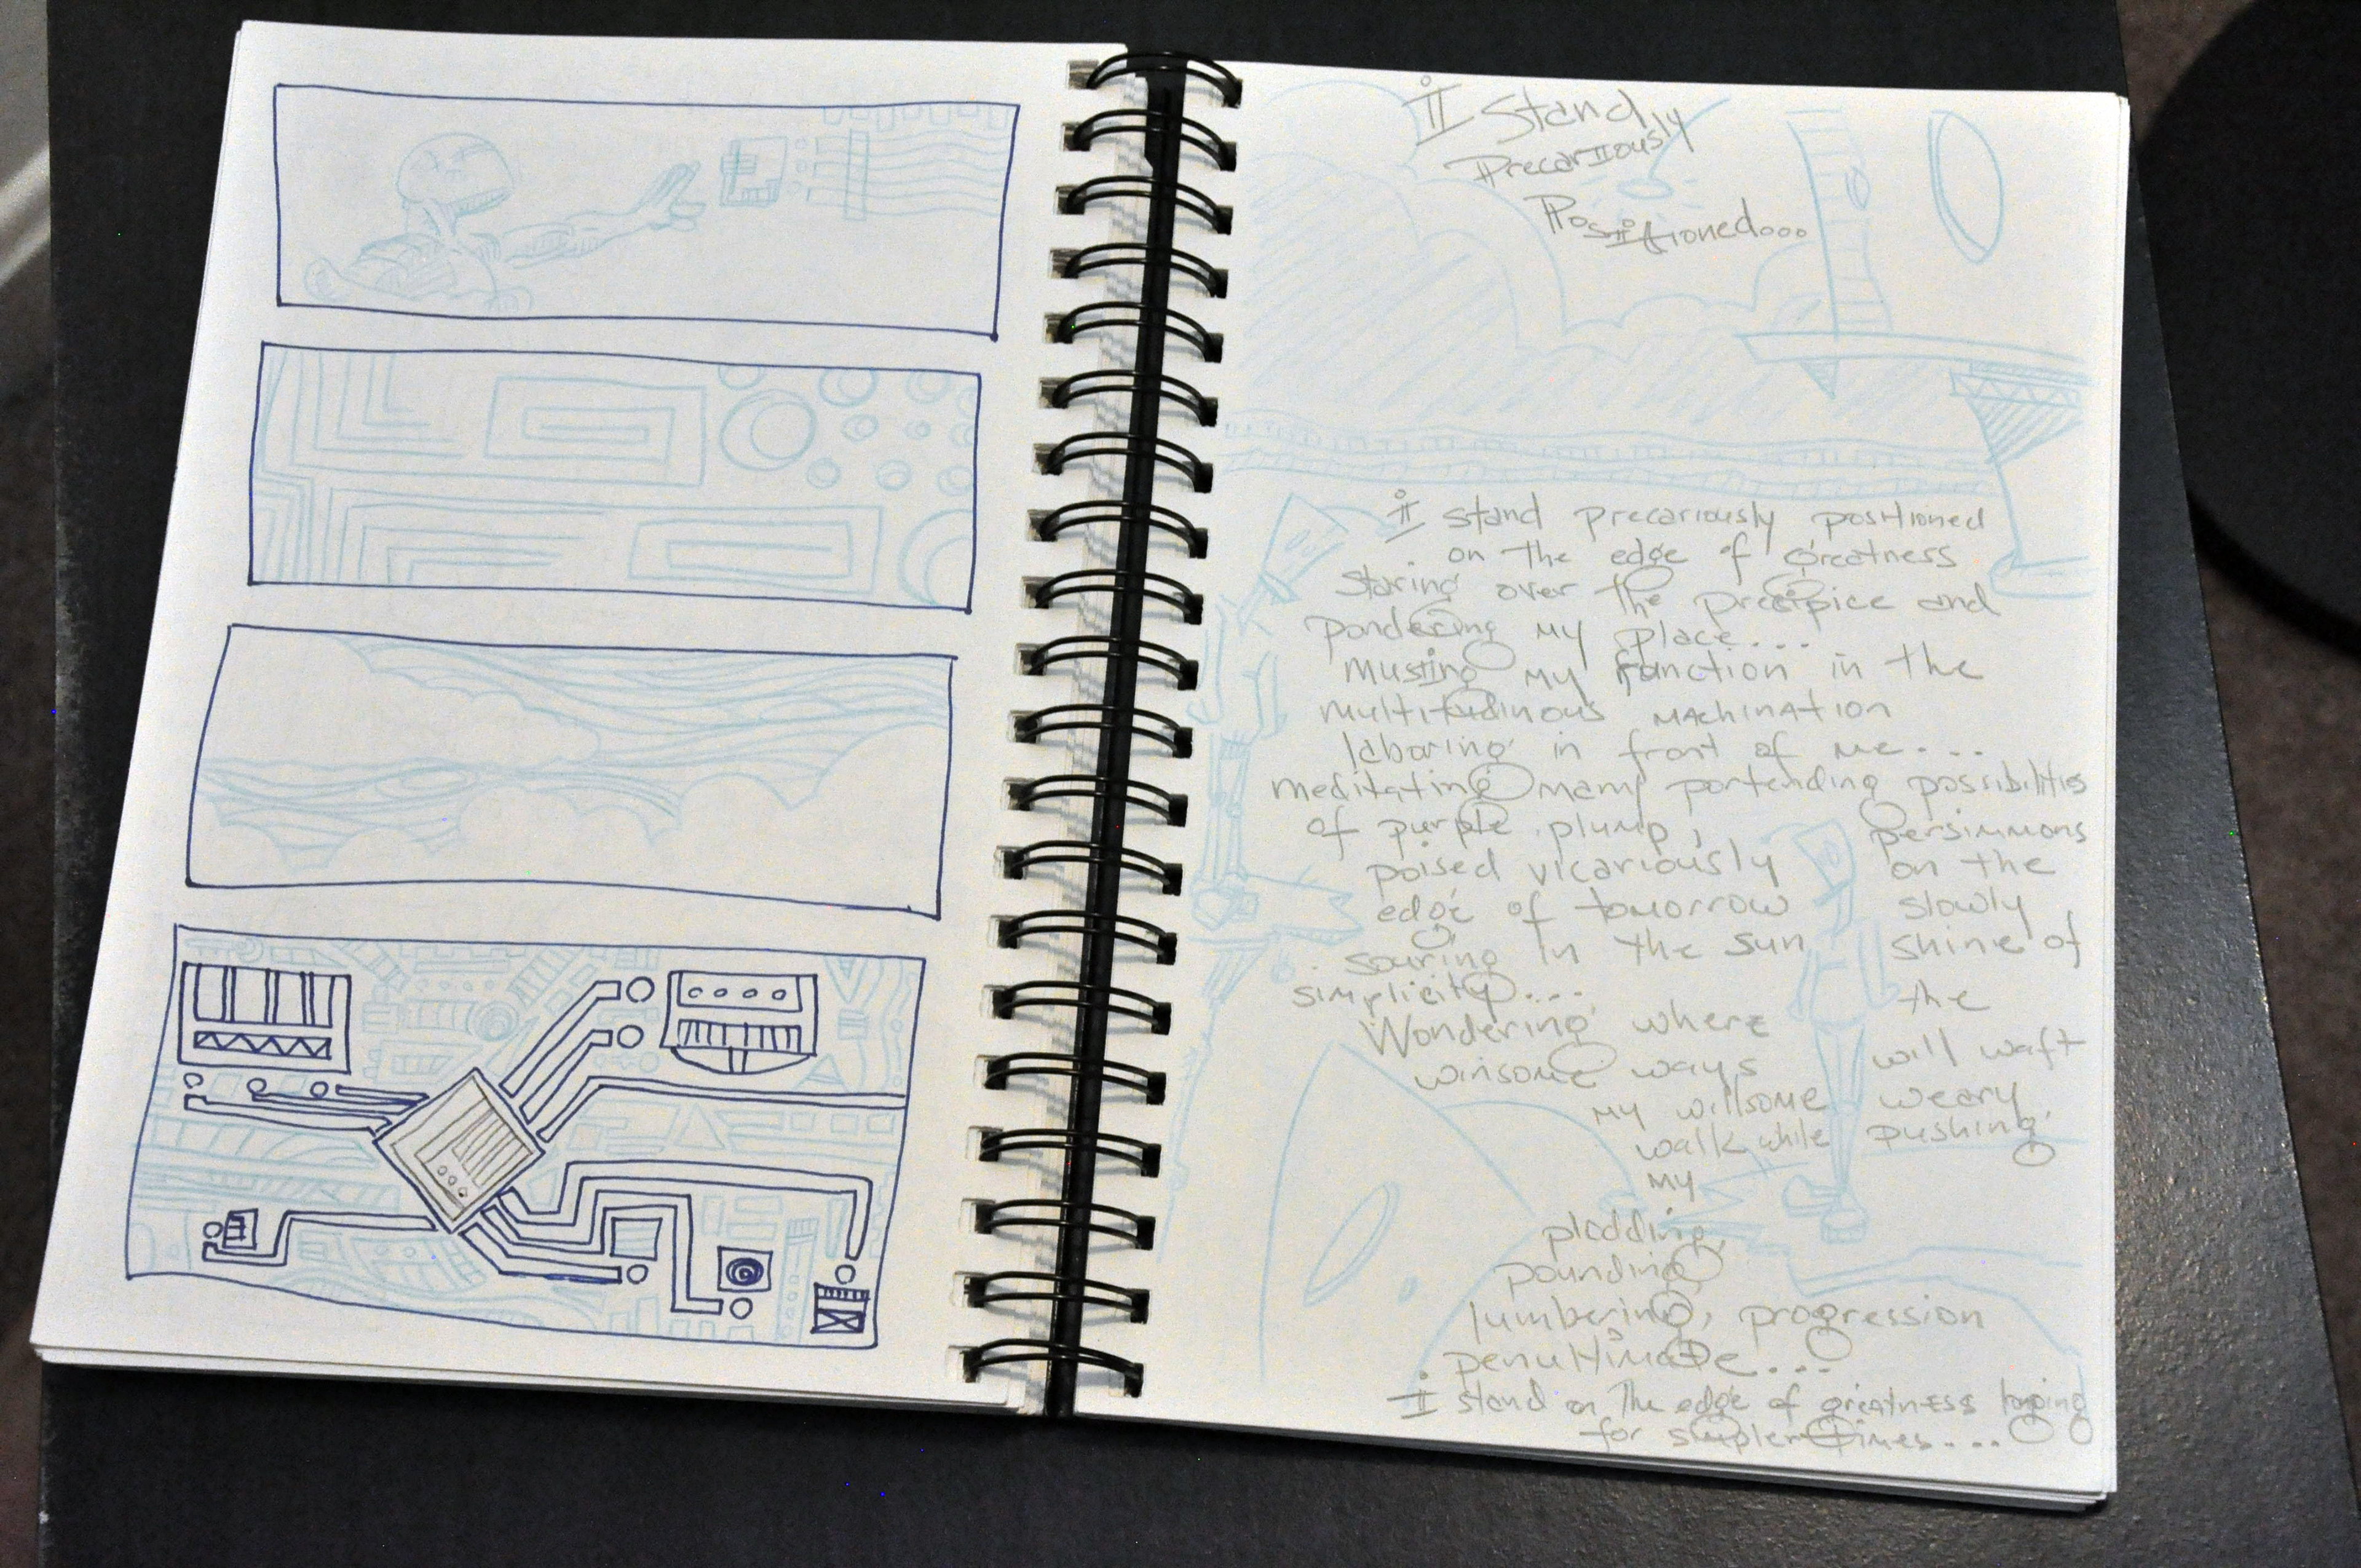 I Stand
Precariously
Positioned...
I stand precariously positioned
on the edge of Greatness
Staring over the precipice and
pondering my place....
musing my function in the
multitudinous machination
laboring in front of me....
meditating many portending possibilities
of purple, plump, persimmons
poised vicariously on the
edge of tomorrow slowly
souring in the sun shine of
simplicity.... the
Wondering where
winsome ways will waft
my willsome weary
walk while pushing
my
plodding,
pounding
lumbering, progression
penultimate....
I stand on the edge of greatness longing
for simpler times....